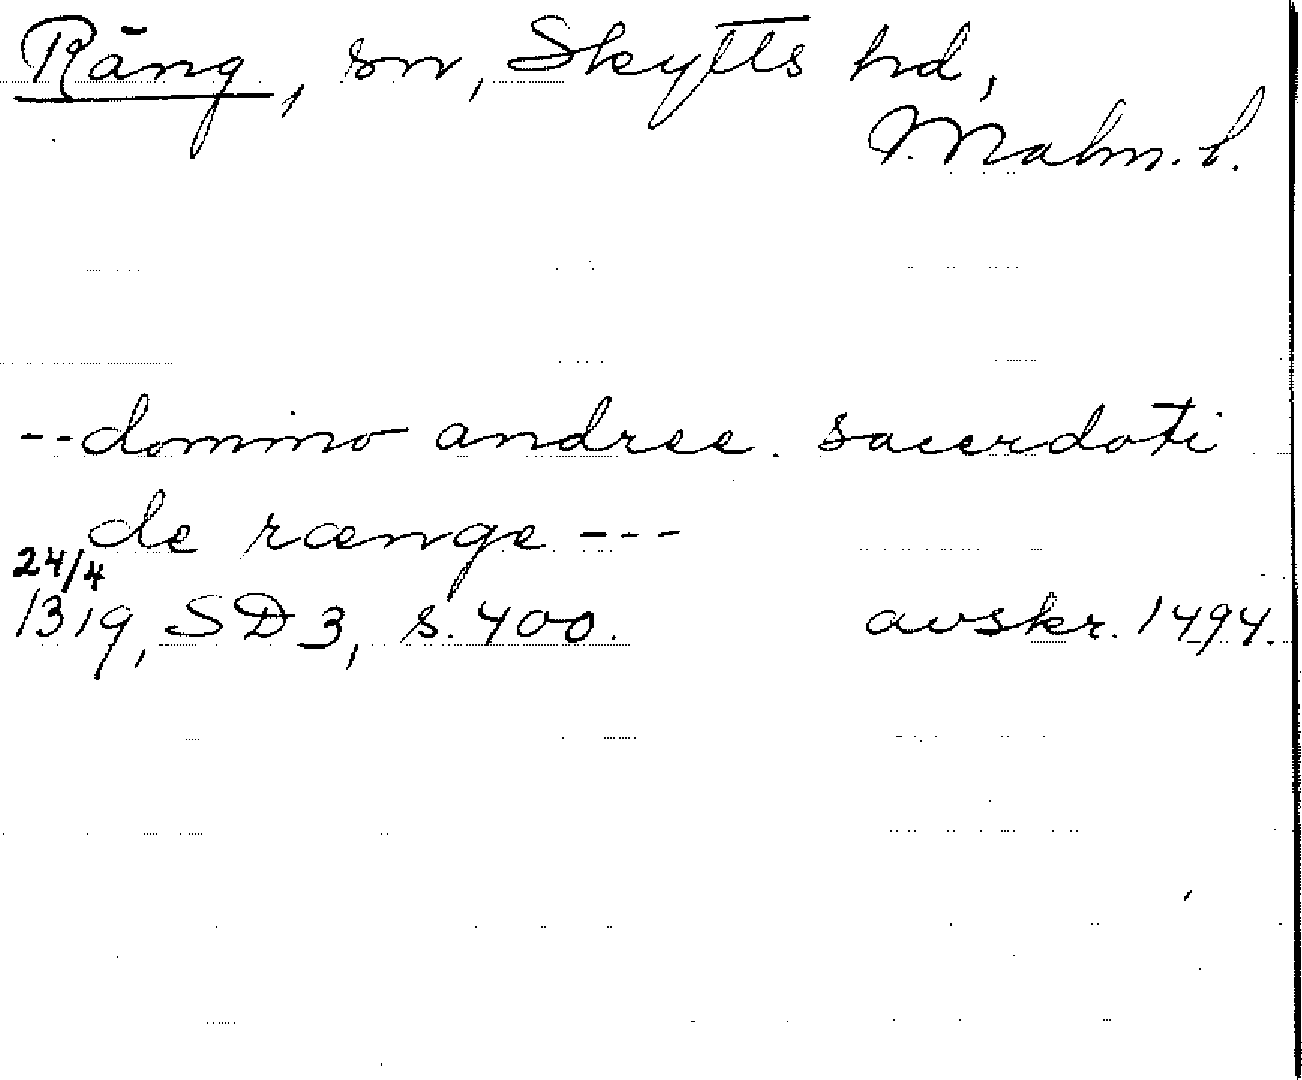 Räng, sn, Skytts hd,
Malm. l.
--domino andree. sacerdoti
de rænge ---
24/4
1319, SD 3, s. 400. avskr. 1494.